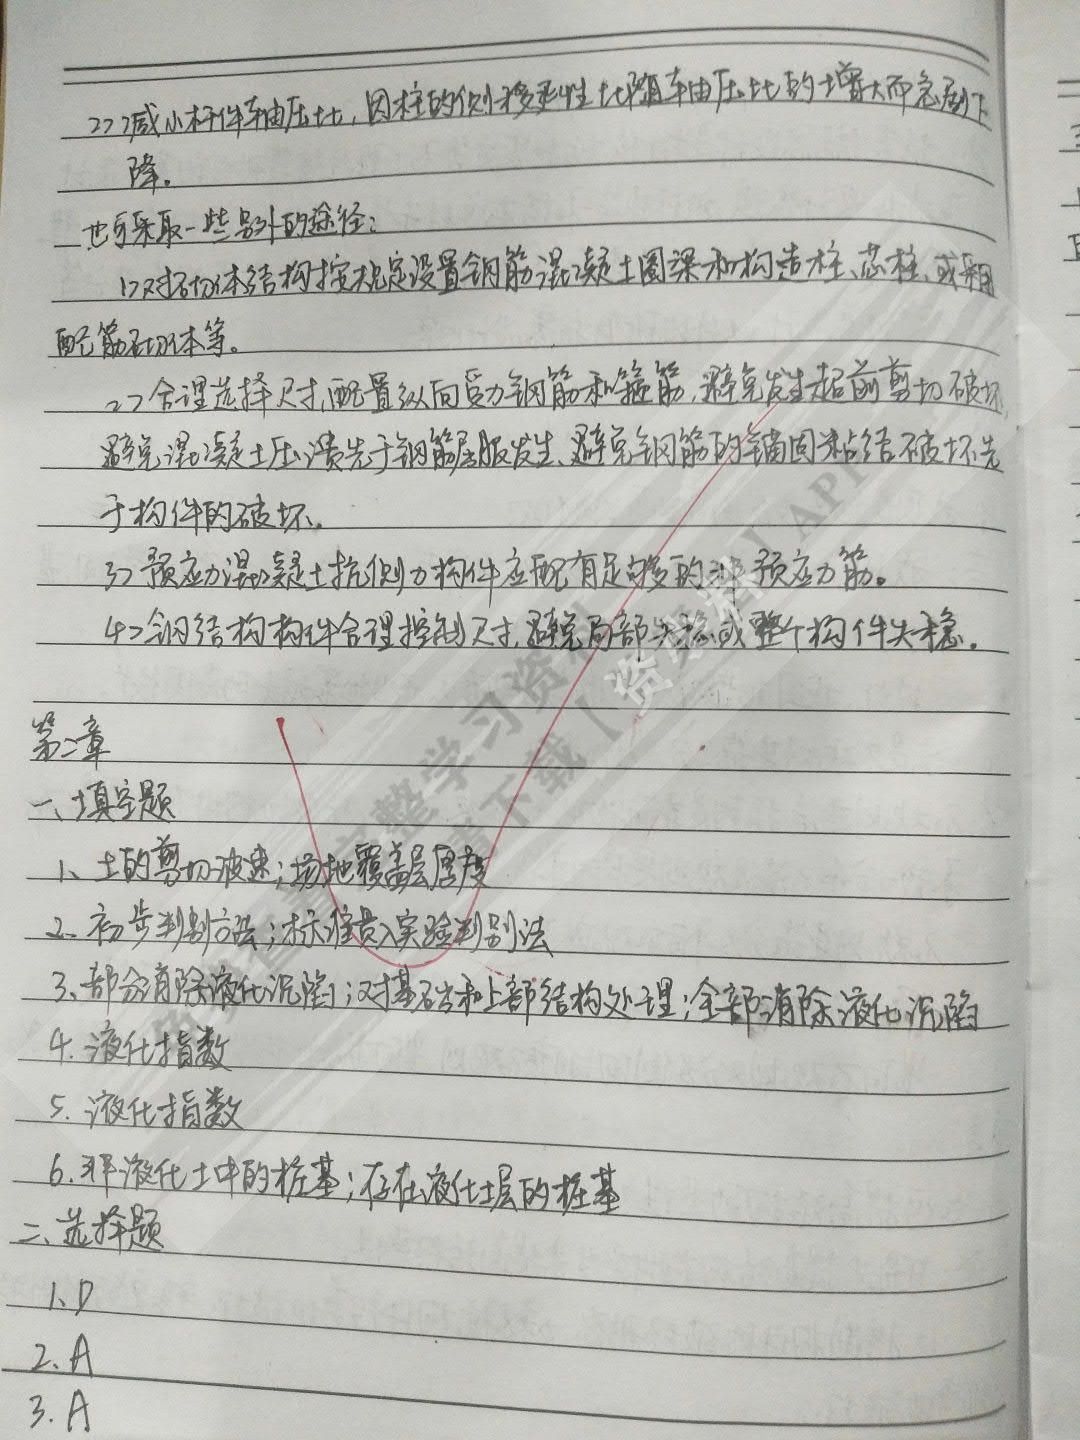 2>减小杆件轴压比，因柱的侧移延性比随轴压比的增大而急剧下
降。
也可采取一些另外的途径：
1>对砌体结构按规定设置钢筋混凝土圈梁和构造柱、芯柱、或采用
配筋砌体等。
2>合理选择尺寸，配置纵向受力钢筋和箍筋，避免发生超前剪切破坏，
避免混凝土压溃先于钢筋屈服发生、避免钢筋的锚固粘结破坏先
于构件的破坏。
3>预应力混凝土抗侧力构件应配有足够的非预应力筋。
4>钢结构构件合理控制尺寸，避免局部失稳或整个构件失稳。
第二章
一、填空题
1、土的剪切波速；场地覆盖层厚度
2、初步判别方法；标准贯入实验判别法
3、部分消除液化沉陷；对基础和上部结构处理；全部消除液化沉陷
4. 液化指数
5. 液化指数
6. 非液化土中的桩基；存在液化土层的桩基
二、选择题
1、D
2、A
3. A
整学习资料
下载【资料】API